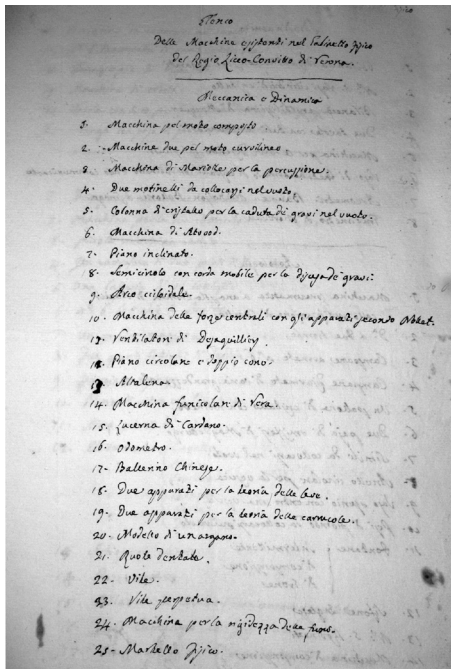 Elenco
Delle Macchine esistenti nel Gabinetto Fisico
del Regio Liceo-Convitto di Verona.
Meccanica e Dinamica
1. Macchina pel moto composto
2. Macchine due pel moto curvilineo.
3. Macchina di Mariotte per la percussione.
4. Due molinelli da collocarsi nel vuoto.
5. Colonna di cristallo per la caduta de gravi nel vuoto.
6. Macchina di Atwood.
7. Piano inclinato.
8. Semicircolo con corda mobile per la discesa de gravi.
9. Arco cicloidale.
10. Macchina delle forze centrali con gli apparati secondo Nollet.
Ventilatori di Desaguilliers.
Piano circolare e doppio cono.
13. Altalena.
14. Macchina funicolare di Vera.
15. Lucerna di Cardano.
16. Odometro.
17. Ballerino Chinese.
18. Due apparati per la teoria delle leve.
19. Due apparati per la teoria delle carrucole.
20. Modello di un argano.
21. Ruote dentate.
22. Vite.
23. Vite perpetua.
24. Macchina per la rigidezza delle funi.
25. Martello Fisico.